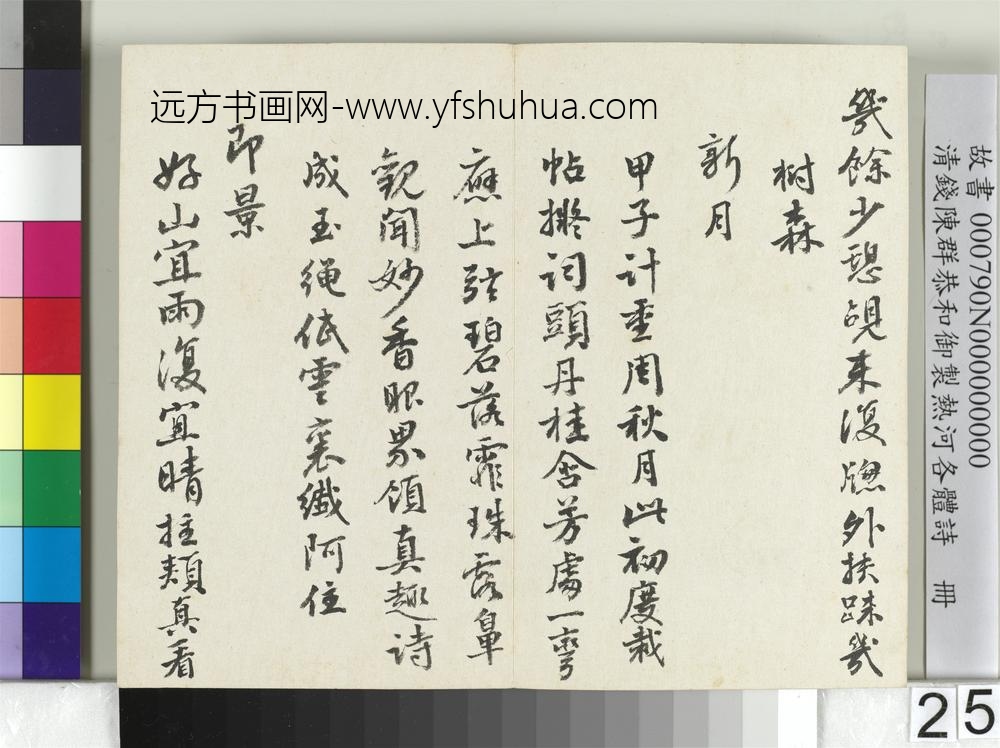 幾餘少憩覯来復牕外扶踈幾
樹森
新月
甲子計重周秋月此初度裁
帖擬詞頭丹桂含芳處一彎
應上弦碧落霏珠露鼻
觀聞妙香眼界領真趣詩
成玉繩低雲裏纖阿住
即景
好山宜雨復宜晴拄頰真看
远方书画网-www.yfshuhua.com
故書 000790N000000000
清錢陳群恭和御製熱河各體詩 冊
25